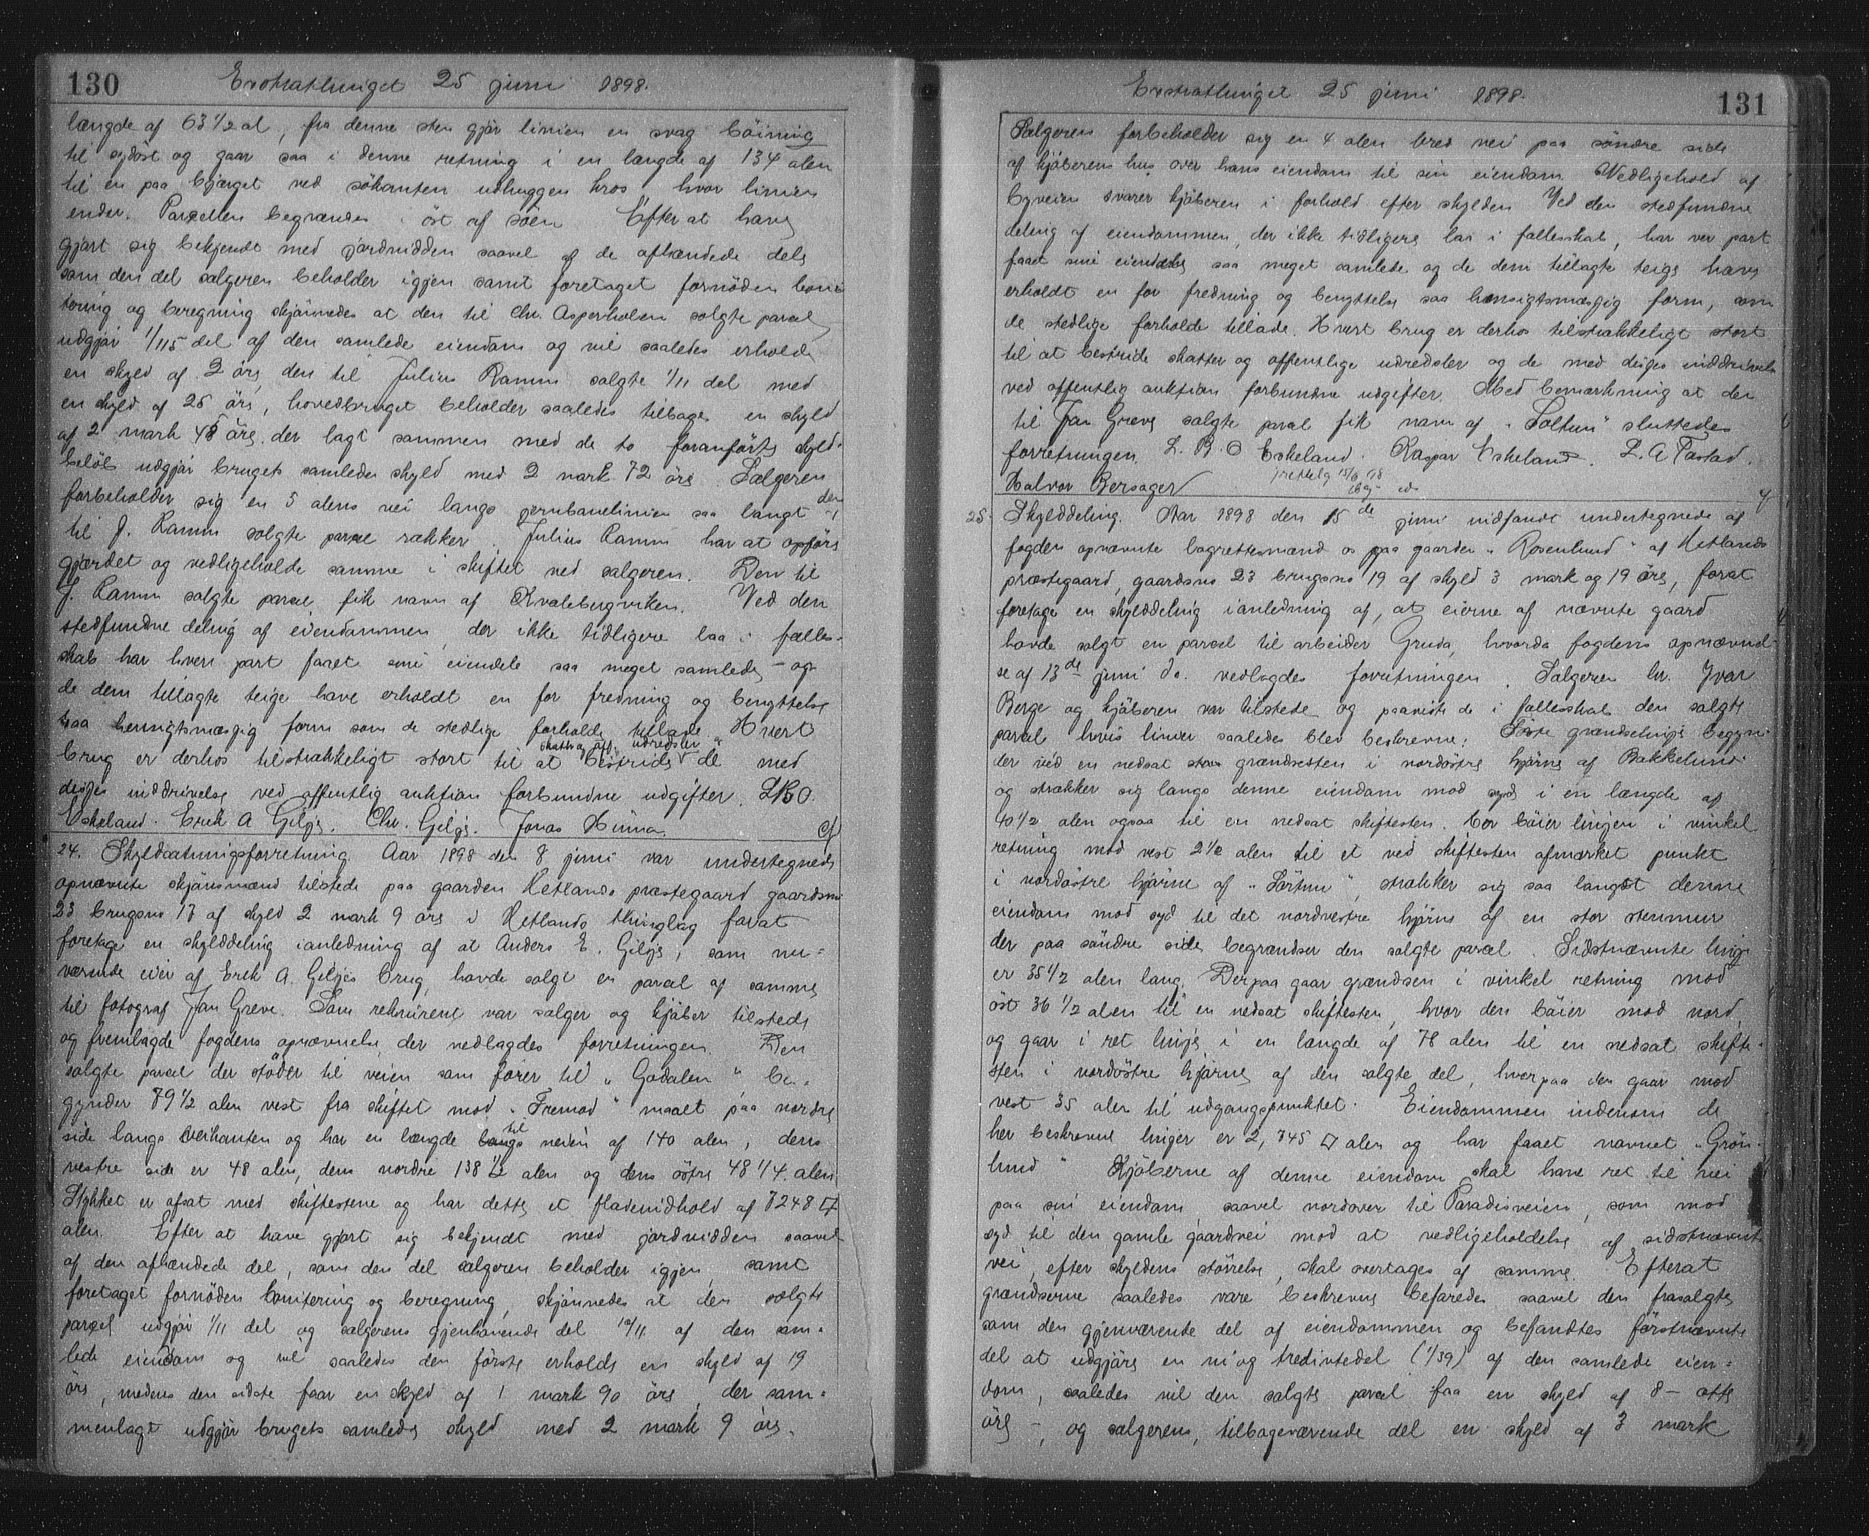 130
Extrathinget 25 juni 1898.
længde af 63 1/2 al, fra denne sten gjør linien en svag böining
til sydöst og gaar saa i denne retning i en længde af 134 alen
til en paa bjerget ved sökanten udhuggen kros hvor linien
ender. Parcellen begrændses i öst af söen Efter at have
gjort sig bekjendt med jordvidden saavel af de afhændede dele
som den del sælgeren beholder igjen samt foretaget fornöden boni
tering og beregning skjönnedes at den til Chr. Asperholen solgte parcel
udgjör 1/115 del af den samlede eiendom og vil saaledes erholde
en skyld af 2 öre, den til Julius Ramm solgte 1/11 del med
en skyld af 25 öre, hovedbruget beholder saaledes tilbage en skyld
af 2 mark 45 öre, der lagt sammen med de to foranförte skyld-
belöb udgjör brugets samlede skyld med 2 mark 72 öre. Sælgeren
forbeholder sig en 5 alens vei langs jernbanelinien saa langt den
til J. Ramm solgte parcel rækker. Julius Ramm har at opföre
gjærdet og vedligeholde samme i skiftet ved sælgeren. Den til
J. Ramm solgte parcel fik navn af Kvalebergviken. Ved den
stedfundne deling af eiendommen, der ikke tidligere laa i fælles-
skab har hver part faaet sine eiendele saa meget samlede – og
de dem tillagte teige have erholdt en for fredning og benyttelse
saa hensigtsmæssig form som de stedlige forholde tillade. Hvert
brug er derhos tilstrækkeligt stort til at bestride skatter og off. udredsler de med
disses inddrivelse ved offentlig auktion forbundne udgifter. L B O.
Eskeland. Erik A Giljje. Chr. Giljje. Jonas Hinna.
24. Skyldsætningsforretning. Aar 1898 den 8 juni var undertegnede
opnævnte skjönsmænd tilstede paa gaarden Hetlands præstegaard gaardsno
23 brugsno 17 af skyld 2 mark 9 öre i Hetlands thinglag forat
foretage en skylddeling ianledning af at Anders E. Giljje, som nu-
værende eier af Erik A. Giljjes brug, havde solgt en parcel af samme
til fotograf Jan Greve. Som rekvirent var sælger og kjöber tilstede
og fremlagde fogdens opnævnelse, der vedlagdes forretningen. Den
solgte parcel der stöder til veien som förer til "Godalen" be-
gynder 79 1/2 alen vest fra skiftet mod "Fremad" maalt paa nordre
side langs veikanten og har en længde langs til veien af 140 alen, dens
vestre side er 48 alen, dens nordre 138 1/2 alen og dens östre 48 1/4 alen
Stykket er afsat med skiftestene og har dette et fladeindhold af 7248 □
alen. Efter at have gjort sig bekjendt med jordvidden saavel
af den afhændede del, som den del sælgeren beholder igjen, samt
foretaget fornöden bonitering og beregning, skjönnedes at den solgte
parcel udgjör 1/11 del og sælgerens gjenhavende del 10/11 af den sam-
lede eiendom og vil saaledes den förste erholde en skyld af 19
öre, medens den sidste faar en skyld af 1 mark 90 öre, der sam-
menlagt udgjör brugets samlede skyld med 2 mark 9 öre.
131
Extrathinget 25 juni 1898.
Sælgeren forbeholder sig en 4 alen bred vei paa söndre side
af kjöberens hus over hans eiendom til sin eiendom. Vedligehold af
byveien svarer kjöberen i forhold efter skylden Ved den stedfundne
deling af eiendommen, der ikke tidligere laa i fællesskab, har ver part
faaet sine eiendele saa meget samlede og de dem tillagte teige have
erholdt en for fredning og benyttelse saa hensigtsmæssig form, som
de stedlige forholde tillade. Hvert brug er derhos tilstrækkeligt stort
til at bestride skatter og offentlige udredsler og de med disses inddrivelse
ved offentlig auktion forbundne udgifter. Med bemærkning at den
til Jan Greve solgte parcel fik navn af "Soltun" sluttedes
forretningen. L. B. O Eskeland. Kaspar Eskeland. L. A Tastad.
Halvor Bersager
25. Skylddeling. Aar 1898 den 15de juni indfandt undertegnede af
fogden opnævnte lagrettesmænd os paa gaarden "Rosenlund" af Hetlands
præstegaard, gaardsno 23 brugsno 19 af skyld 3 mark og 19 öre, forat
foretage en skylddeling ianledning af, at eierne af nævnte gaard
havde solgt en parcel til arbeider Gruda, hvorda fogdens opnævnel-
se af 13de juni ds. vedlagdes forretningen. Sælgeren hr. Ivar
Berge og kjöberen var tilstede og paaviste de i fællesskab den solgte
parcel hvis linier saaledes blev beskrevne: Förste grændselinje begyn-
der ved en nedsat sten grændsesten i nordöstre hjörne af Bakkelund
og strækker sig langs denne eiendom mod syd i en længde af
40 1/2 alen ogsaa til en nedsat skiftesten. Der böier linjen i vinkel
retning mod vest 2 1/2 alen til et ved skiftesten afmærket punkt
i nordöstre hjörne af "Sörtun", strækker sig saa langst denne
eiendom mod syd til det nordvestre hjörne af en stor stenmur
der paa söndre side begrændser den solgte parcel. Sidstnævnte linje
er 35 1/2 alen lang. Derpaa gaar grændsen i vinkel retning mod
öst 36 1/2 alen til en nedsat skiftesten, hvor den böier mod nord
og gaar i ret linje i en længde af 78 alen til en nedsat skifte-
sten i nordöstre hjörne af den solgte del, hvorpaa den gaar mod
vest 35 alen til udgangspunktet. Eiendommen indenom de
her beskrevne linjer er 2,745 □ alen og har faaet navnet "Grön-
lund" Kjöberne af denne eiendom skal have ret til vei
paa sin eiendom saavel nordover til Paradisveien, som mod
syd til den gamle gaardsvei mod at vedligeholdelse af sidstnævnte
vei, efter skyldens störrelse, skal overtages af samme. Efterat
grændserne saaledes vare beskrevne befaredes saavel den frasolgte
som den gjenværende del af eiendommen og befandtes förstnævnte
del at udgjöre en ni og tredivtedel (1/39) af den samlede eien-
dom, saaledes vil den solgte parcel faa en skyld af 8 – otte
öre –, og sælgerens, tilbageværende del en skyld af 3 mark